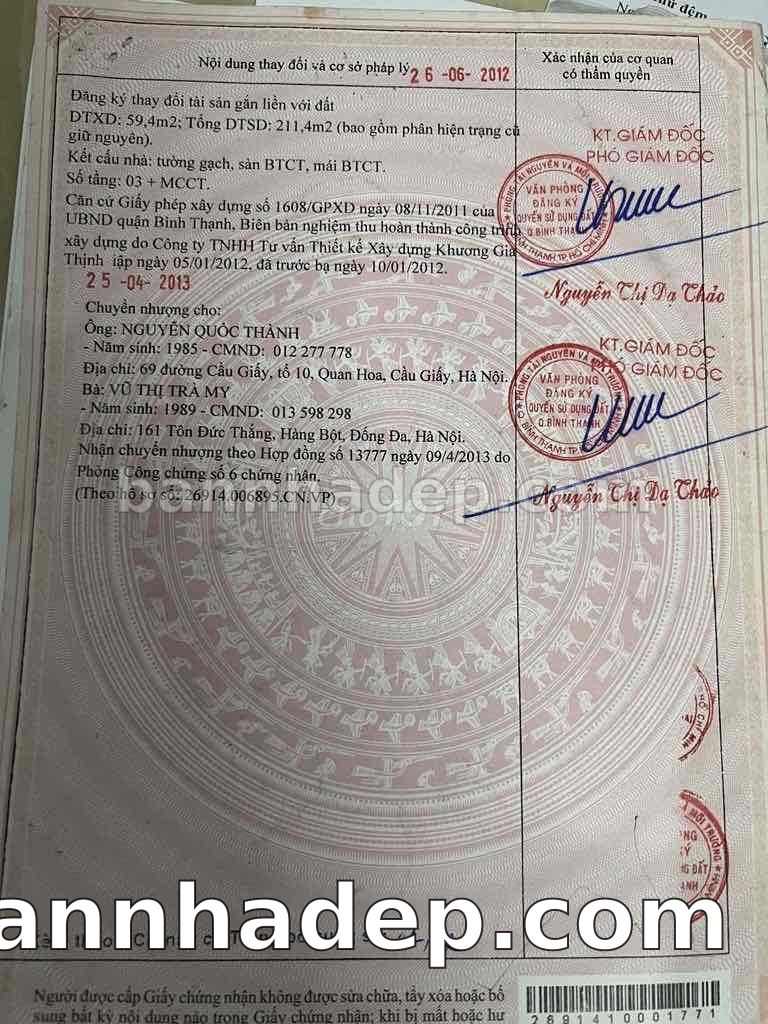 Nội dung thay đổi và cơ sở pháp lý
26 -06- 2012
Xác nhận của cơ quan
có thẩm quyền
Đăng ký thay đổi tài sản gắn liền với đất
DTXD: 59,4m2; Tổng DTSD: 211,4m2 (bao gồm phân hiện trạng cũ
giữ nguyên).
Kết cấu nhà: tường gạch, sàn BTCT, mái BTCT.
Số tầng: 03 + MCCT.
Căn cứ Giấy phép xây dựng số 1608/GPXD ngày 08/11/2011 của
UBND quận Bình Thạnh, Biên bản nghiệm thu hoàn thành công trình
xây dựng do Công ty TNHH Tư vấn Thiết kế Xây dựng Khương Gia
Thịnh lập ngày 05/01/2012, đã trước bạ ngày 10/01/2012.
KT.GIÁM ĐỐC
PHÓ GIÁM ĐỐC
VĂN PHÒNG
ĐĂNG KÝ
QUYỀN SỬ DỤNG ĐẤT
Q.BÌNH THẠNH
Nguyễn Thị Dạ Thảo
25 -04- 2013
Chuyển nhượng cho:
Ông: NGUYỄN QUỐC THÀNH
- Năm sinh: 1985 - CMND: 012 277 778
Địa chỉ: 69 đường Cầu Giấy, tổ 10, Quan Hoa, Cầu Giấy, Hà Nội.
Bà: VŨ THỊ TRÀ MY
- Năm sinh: 1989 - CMND: 013 598 298
Địa chỉ: 161 Tôn Đức Thắng, Hàng Bột, Đống Đa, Hà Nội.
Nhận chuyển nhượng theo Hợp đồng số 13777 ngày 09/4/2013 do
Phòng Công chứng số 6 chứng nhận.
(Theo hồ sơ số: 26914.006895.CN.VP)
KT.GIÁM ĐỐC
PHÓ GIÁM ĐỐC
VĂN PHÒNG
ĐĂNG KÝ
QUYỀN SỬ DỤNG ĐẤT
Q.BÌNH THẠNH
Nguyễn Thị Dạ Thảo
bannhadep.com
annhadep.com
Người được cấp Giấy chứng nhận không được sửa chữa, tẩy xóa hoặc bổ
sung bất kỳ nội dung nào trong Giấy chứng nhận; khi bị mất hoặc hư
2691410001771